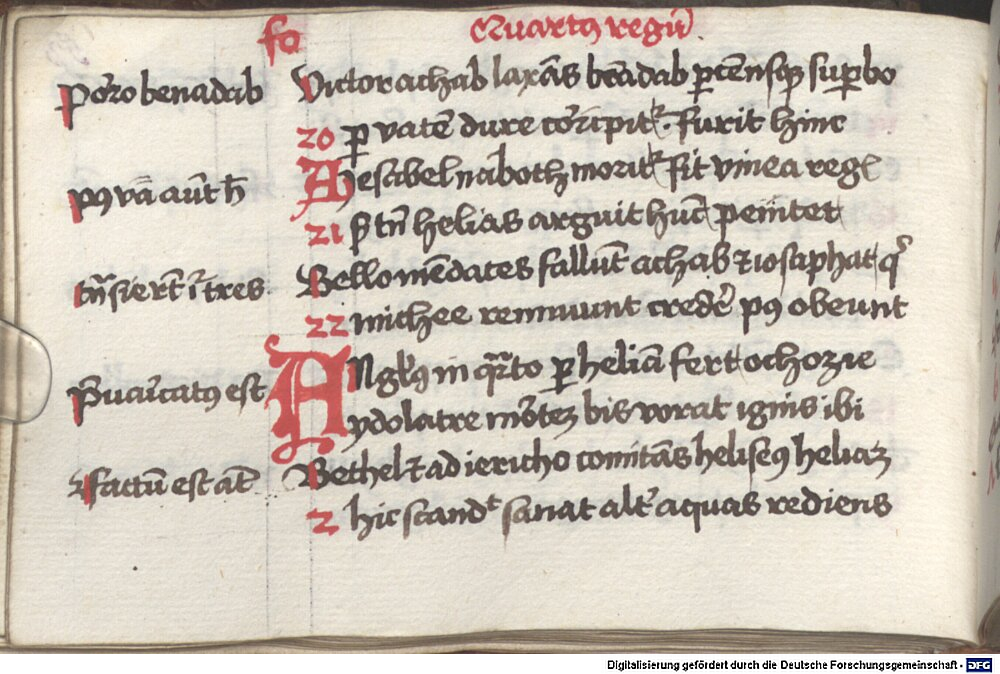 fo Quartꝰ regū
Porro benadab Victor achab laxās bēadab ꝑcēnsqꝫ suꝑbo
20 ꝑ vatē dure corripitᷣ. furit hinc
pꝰ v̄a aūt h̄ Jesabel naboth moritᷣ fit vinea regꝭ
21 helias arguit hūc penitet
tn̄sierūt ī tres Bello mēdates fallūt achab ⁊ iosaphat qͥ
22 michee rennuunt credē pꝰ obeunt
p̄uaricatꝰ est Anglꝰ in qͣrto ꝑ heliā fert ochozie
ydolatre mortē bis vorat ignis ibi
factū est āt Bethel ⁊ ad iericho comitās heliseꝰ heliaꝫ
2 hic scandit sanat alt͛ aquas rediens
Digitalisierung gefördert durch die Deutsche Forschungsgemeinschaft - DFG